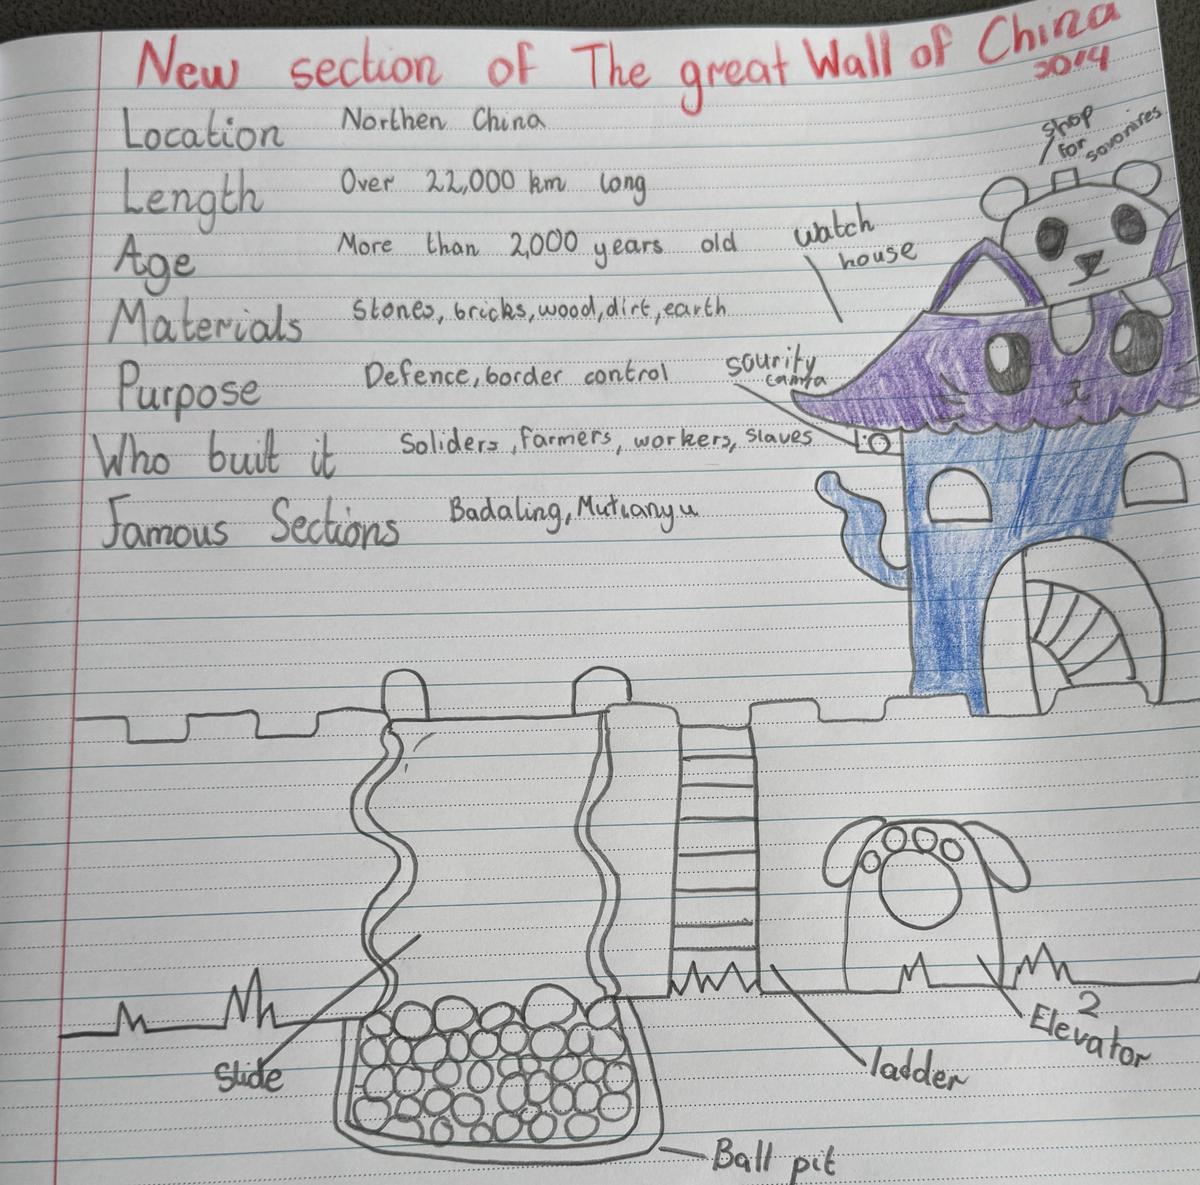 New section of The great Wall of China
2014
Location Northen China
Length Over 22,000 km long
Age More than 2,000 years old
Materials Stones, bricks, wood, dirt, earth
Purpose Defence, border control
Who built it Soliders, farmers, workers, slaves
Famous Sections Badaling, Mutianyu
shop
for
savonires
watch
house
sourity
camra
Slide
Ball pit
ladder
2
Elevator